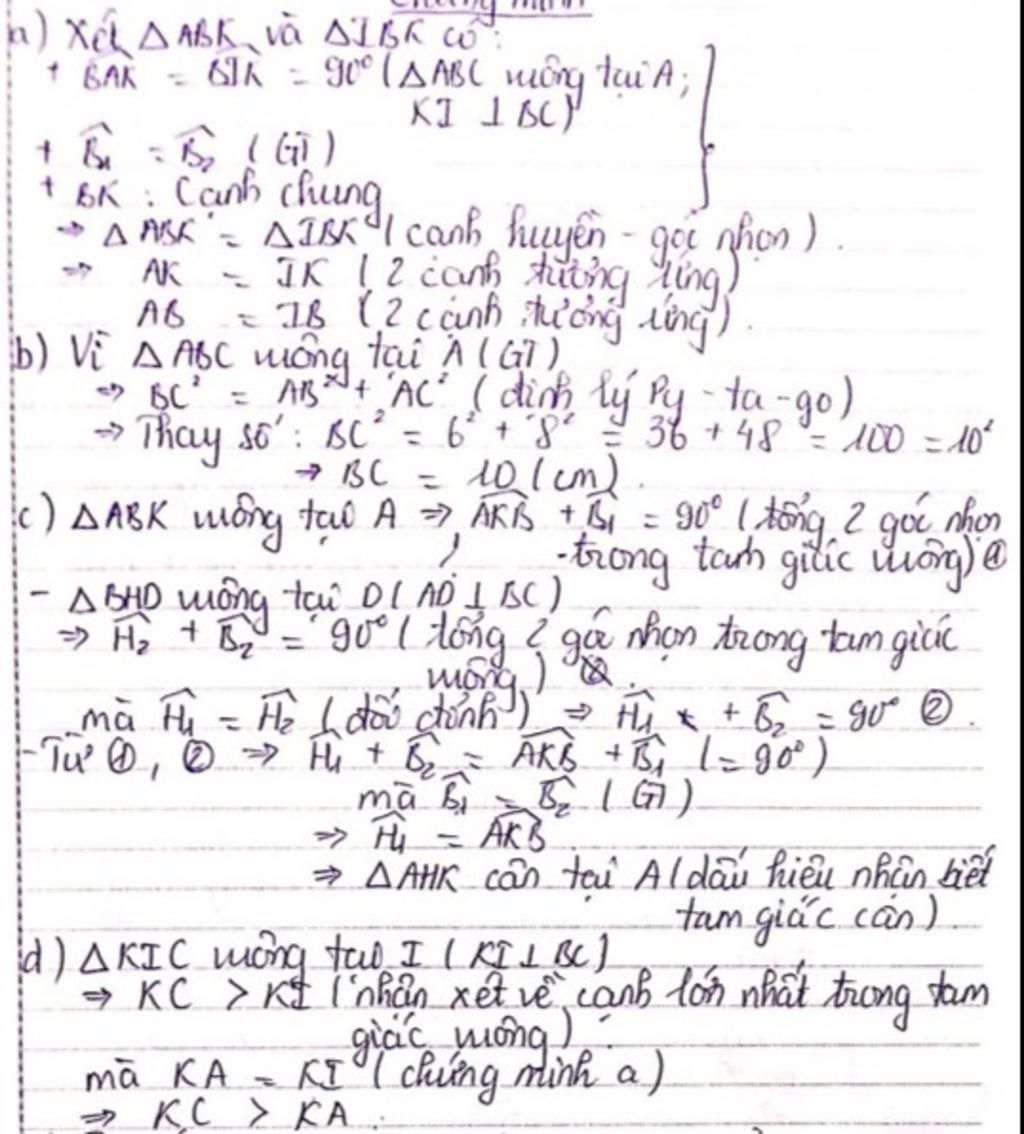 Chứng minh
a) Xét △ABK và △IBK có:
+ BAK = BIK = 90° (△ABC vuông tại A;
KI ⊥ BC)
+ B₁ = B₂ (GT)
+ BK : Cạnh chung
⇒ △ABK = △IBK (cạnh huyền - góc nhọn).
⇒ AK = IK (2 cạnh tương ứng)
AB = IB (2 cạnh tương ứng).
b) Vì △ABC vuông tại A (GT)
⇒ BC² = AB² + AC² (định lý Py-ta-go)
⇒ Thay số : BC² = 6² + 8² = 36 + 48 = 100 = 10²
⇒ BC = 10 (cm).
c) △ABK vuông tại A ⇒ AKB + B₁ = 90° (tổng 2 góc nhọn
trong tam giác vuông) ①
- △BHD vuông tại D (AD ⊥ BC)
⇒ H₂ + B₂ = 90° (tổng 2 góc nhọn trong tam giác
vuông).
mà H₁ = H₂ (đối đỉnh) ⇒ H₁ + B₂ = 90° ②.
- Từ ①, ② ⇒ H₁ + B₂ = AKB + B₁ (= 90°)
mà B₁ = B₂ (GT)
⇒ H₁ = AKB
⇒ △AHK cân tại A (dấu hiệu nhận biết
tam giác cân).
d) △KIC vuông tại I (KI ⊥ BC)
⇒ KC > KI (nhận xét về cạnh lớn nhất trong tam
giác vuông).
mà KA = KI (chứng minh a)
⇒ KC > KA.